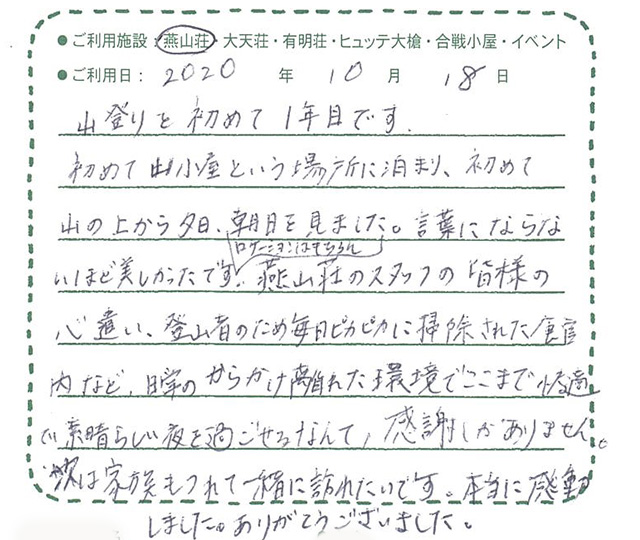 ●ご利用施設：燕山荘・大天荘・有明荘・ヒュッテ大槍・合戦小屋・イベント
●ご利用日：2020 年 10 月 18 日
山登りを初めて1年目です.
初めて山小屋という場所に泊まり、初めて
山の上から夕日、朝日を見ました。言葉にならな
ロケーションはもちろん
いほど美しかったです。燕山荘のスタッフの皆様の
心遣い、登山者のため毎日ピカピカに掃除された館
内など、日常のからかけ離れた環境でここまで快適
で素晴らしい夜を過ごせるなんて, 感謝しかありません。
次は家族もつれて一緒に訪れたいです。本当に感動
しました。ありがとうございました。